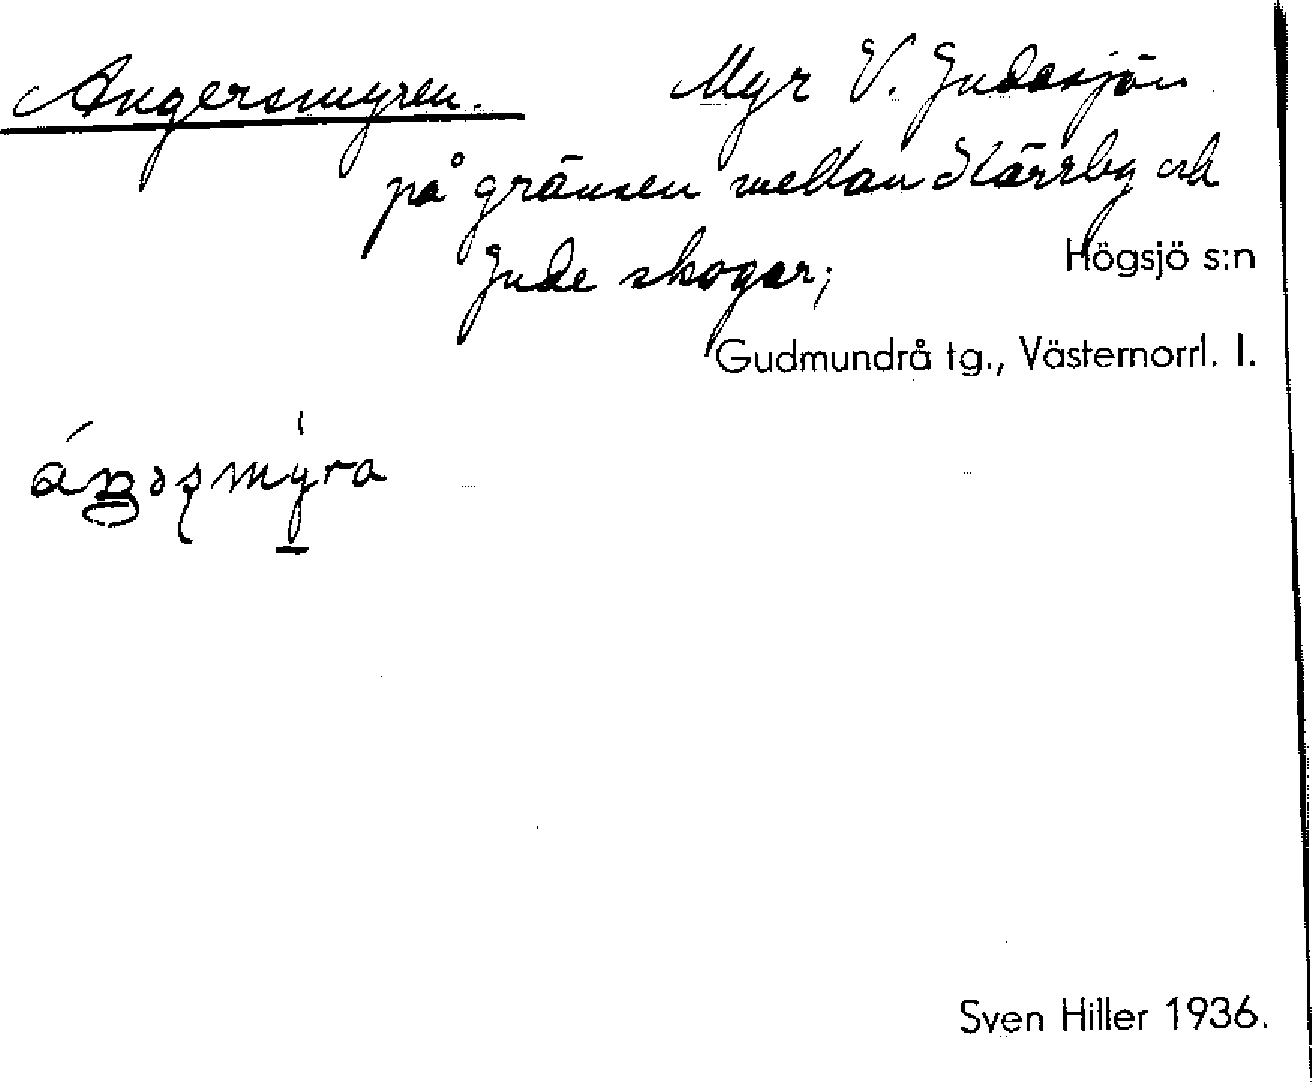 Angersmyren. Myr V. Judesjön
på gränsen mellan Kärrby och
Högsjö s:n
Jude skogar;
Gudmundrå tg., Västernorrl. l.
Sven Hiller 1936.